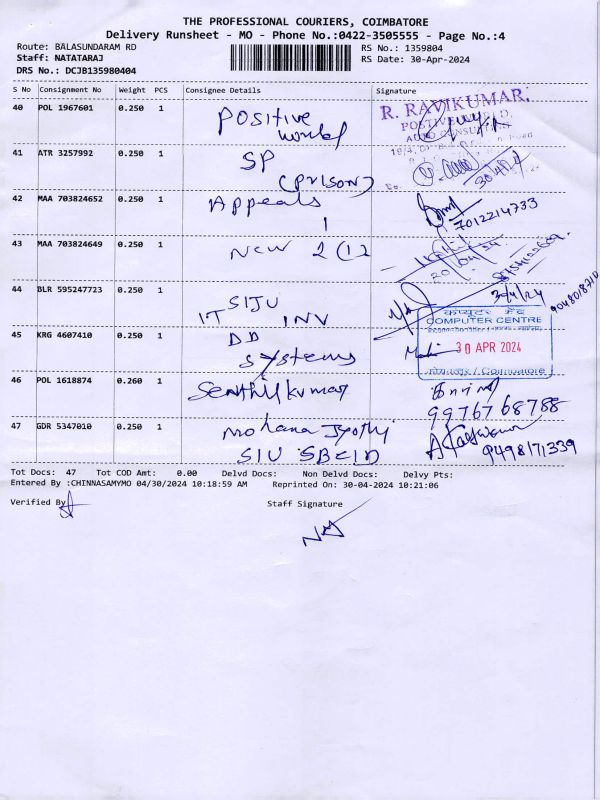 THE PROFESSIONAL COURIERS, COIMBATORE
Delivery Runsheet - MO - Phone No.:0422-3505555 - Page No.:4
Route: BALASUNDARAM RD
RS No.: 1359804
Staff: NATATARAJ
RS Date: 30-Apr-2024
DRS No.: DCJB135980404
S No Consignment No Weight PCS Consignee Details Signature
40 POL 1967601 0.250 1 Positive
R. RAVIKUMAR,
41 ATR 3257992 0.250 1 SP
(Prison)
30/4/24
42 MAA 703824652 0.250 1 Appeals
1
7012214733
43 MAA 703824649 0.250 1 New 2(12
44 BLR 595247723 0.250 1 SIJU
IT INV
3/4/24
9048018710
कंप्यूटर केंद्र
COMPUTER CENTRE
45 KRG 4607410 0.250 1 DD
Systems
30 APR 2024
कोयम्बत्तूर / Coimbatore
46 POL 1618874 0.260 1 Senthilkumar
9976768788
47 GDR 5347010 0.250 1 Mohana Jyothi
SIU SBCID
9498171339
Tot Docs: 47 Tot COD Amt: 0.00 Delvd Docs: Non Delvd Docs: Delvy Pts:
Entered By :CHINNASAMYMO 04/30/2024 10:18:59 AM Reprinted On: 30-04-2024 10:21:06
Verified By
Staff Signature